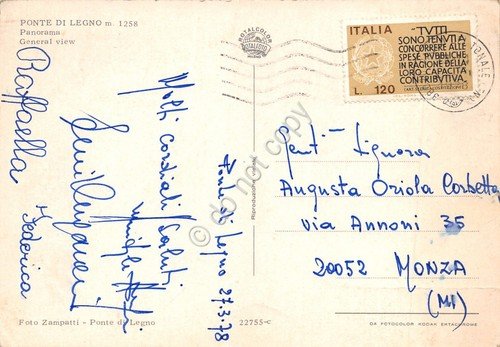 PONTE DI LEGNO m. 1258
Panorama
General view
ROTALCOLOR
ROTALFOTO
ITALIA
TUTTI
SONO TENUTI A
CONCORRERE ALLE
SPESE PUBBLICHE
IN RAGIONE DELLA
LORO CAPACITÀ
CONTRIBUTIVA
L. 120
Raffaella
e Federica
Molti cordiali saluti
Ponte di Legno 27-3-78
do not copy
Gent. Signora
Augusta Oriola Corbetta
via Annoni 35
20052 MONZA
(MI)
Foto Zampatti - Ponte di Legno
22755-c
DA FOTOCOLOR KODAK EKTACHROME